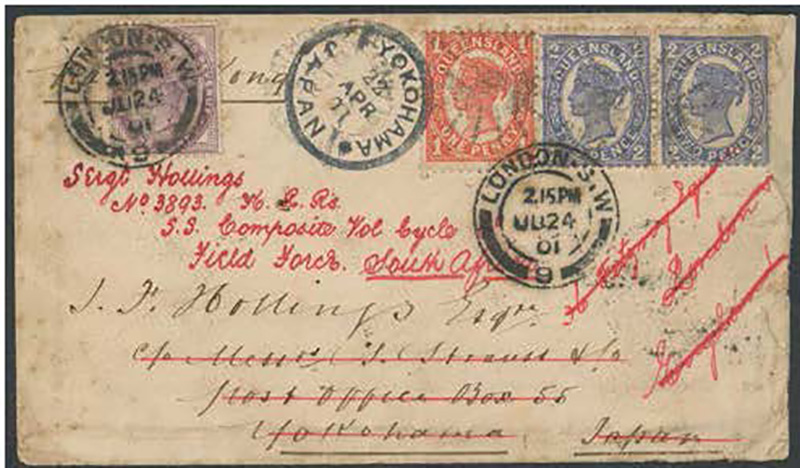 Kong
LONDON.S.W
2.15PM
JU24
01
9
YOKOHAMA
JAPAN
APR
QUEENSLAND
ONE PENNY
1 1
QUEENSLAND
TWO PENCE
2 2
QUEENSLAND
TWO PENCE
2 2
LONDON.S.W
2.15PM
JU24
01
9
Sergt Hollings
No 3893. K. L. R's
S.S. Composite Vol Cycle
Field Force. South Africa
London
England
J. F. Hollings Esqr.
c/o Messrs S. Strauss & Co
Post Office Box 55
Yokohama Japan